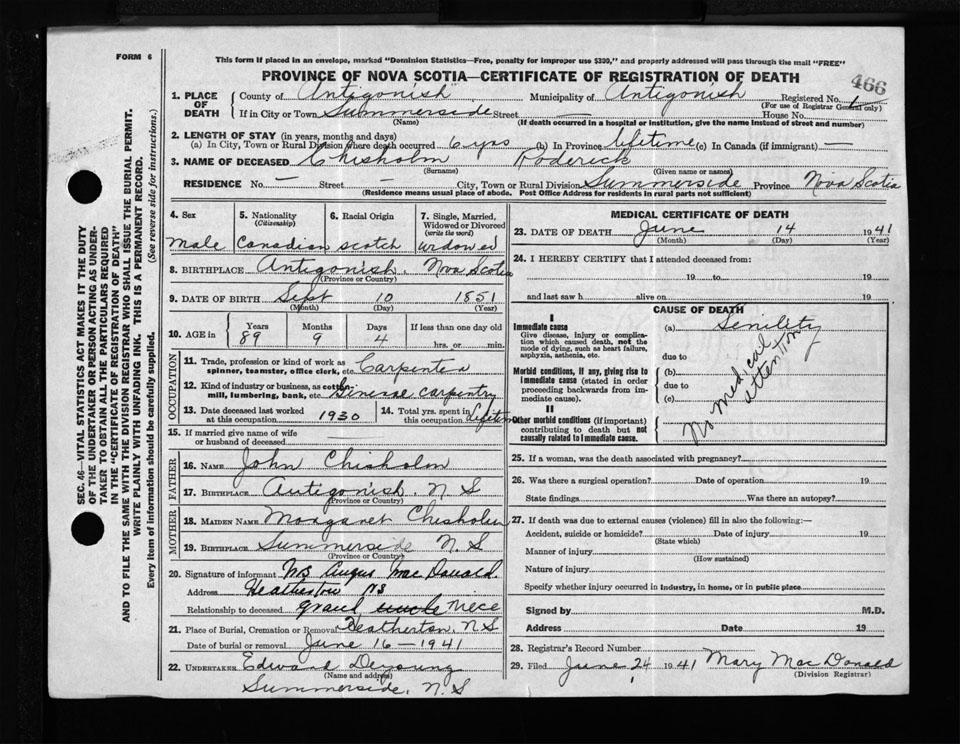 FORM 6
This form if placed in an envelope, marked "Dominion Statistics—Free, penalty for improper use $300," and properly addressed will pass through the mail "FREE"
PROVINCE OF NOVA SCOTIA—CERTIFICATE OF REGISTRATION OF DEATH
466
1. PLACE OF DEATH County of Antigonish Municipality of Antigonish Registered No. 1
(For use of Registrar General only)
If in City or Town Summerside Street — House No.
(Name) (If death occurred in a hospital or institution, give the name instead of street and number)
2. LENGTH OF STAY (in years, months and days)
(a) In City, Town or Rural Division where death occurred 6 yrs (b) In Province lifetime (c) In Canada (if immigrant) —
3. NAME OF DECEASED Chisholm Roderick
(Surname) (Given name or names)
RESIDENCE No. — Street — City, Town or Rural Division Summerside Province Nova Scotia
(Residence means usual place of abode. Post Office Address for residents in rural parts not sufficient)
4. Sex male
5. Nationality (Citizenship) Canadian
6. Racial Origin scotch
7. Single, Married, Widowed or Divorced (write the word) widowed
8. BIRTHPLACE Antigonish. Nova Scotia
(Province or Country)
9. DATE OF BIRTH Sept 10 1851
(Month) (Day) (Year)
10. AGE in Years 89 Months 9 Days 4 If less than one day old
hrs. or min.
OCCUPATION
11. Trade, profession or kind of work as spinner, teamster, office clerk, etc. Carpenter
12. Kind of industry or business, as cotton-mill, lumbering, bank, etc. carpentry
13. Date deceased last worked at this occupation 1930
14. Total yrs. spent in this occupation Lifetime
15. If married give name of wife or husband of deceased
FATHER
16. NAME John Chisholm
17. BIRTHPLACE Antigonish. N S
(Province or Country)
MOTHER
18. MAIDEN NAME Margaret Chisholm
19. BIRTHPLACE Summerside N. S
(Province or Country)
20. Signature of informant Mrs Angus Mac Donald
Address Heatherton NS
Relationship to deceased grand uncle niece
21. Place of Burial, Cremation or Removal Heatherton, N S
Date of burial or removal June 16 - 1941
22. UNDERTAKER Edward Deyoung
(Name and address)
Summerside, N. S
MEDICAL CERTIFICATE OF DEATH
23. DATE OF DEATH June 14 1941
(Month) (Day) (Year)
24. I HEREBY CERTIFY that I attended deceased from:
19 to 19
and last saw h alive on 19
CAUSE OF DEATH
I
Immediate cause
Give disease, injury or complication which caused death, not the mode of dying, such as heart failure, asphyxia, asthenia, etc.
(a) Senility
due to
Morbid conditions, if any, giving rise to immediate cause (stated in order proceeding backwards from immediate cause).
(b)
due to
(c)
No medical attention
II
Other morbid conditions (if important) contributing to death but not causally related to immediate cause.
25. If a woman, was the death associated with pregnancy?
26. Was there a surgical operation? Date of operation 19
State findings Was there an autopsy?
27. If death was due to external causes (violence) fill in also the following:—
Accident, suicide or homicide? Date of injury 19
(State which)
Manner of injury
(How sustained)
Nature of injury
Specify whether injury occurred in industry, in home, or in public place
Signed by M.D.
Address Date 19
28. Registrar's Record Number
29. Filed June 24 1941 Mary Mac Donald
(Division Registrar)
SEC. 46—VITAL STATISTICS ACT MAKES IT THE DUTY
OF THE UNDERTAKER OR PERSON ACTING AS UNDER-
TAKER TO OBTAIN ALL THE PARTICULARS REQUIRED
IN THE "CERTIFICATE OF REGISTRATION OF DEATH"
AND TO FILE THE SAME WITH THE DIVISION REGISTRAR WHO SHALL ISSUE THE BURIAL PERMIT.
WRITE PLAINLY WITH UNFADING INK. THIS IS A PERMANENT RECORD.
Every item of information should be carefully supplied. (See reverse side for instructions.)